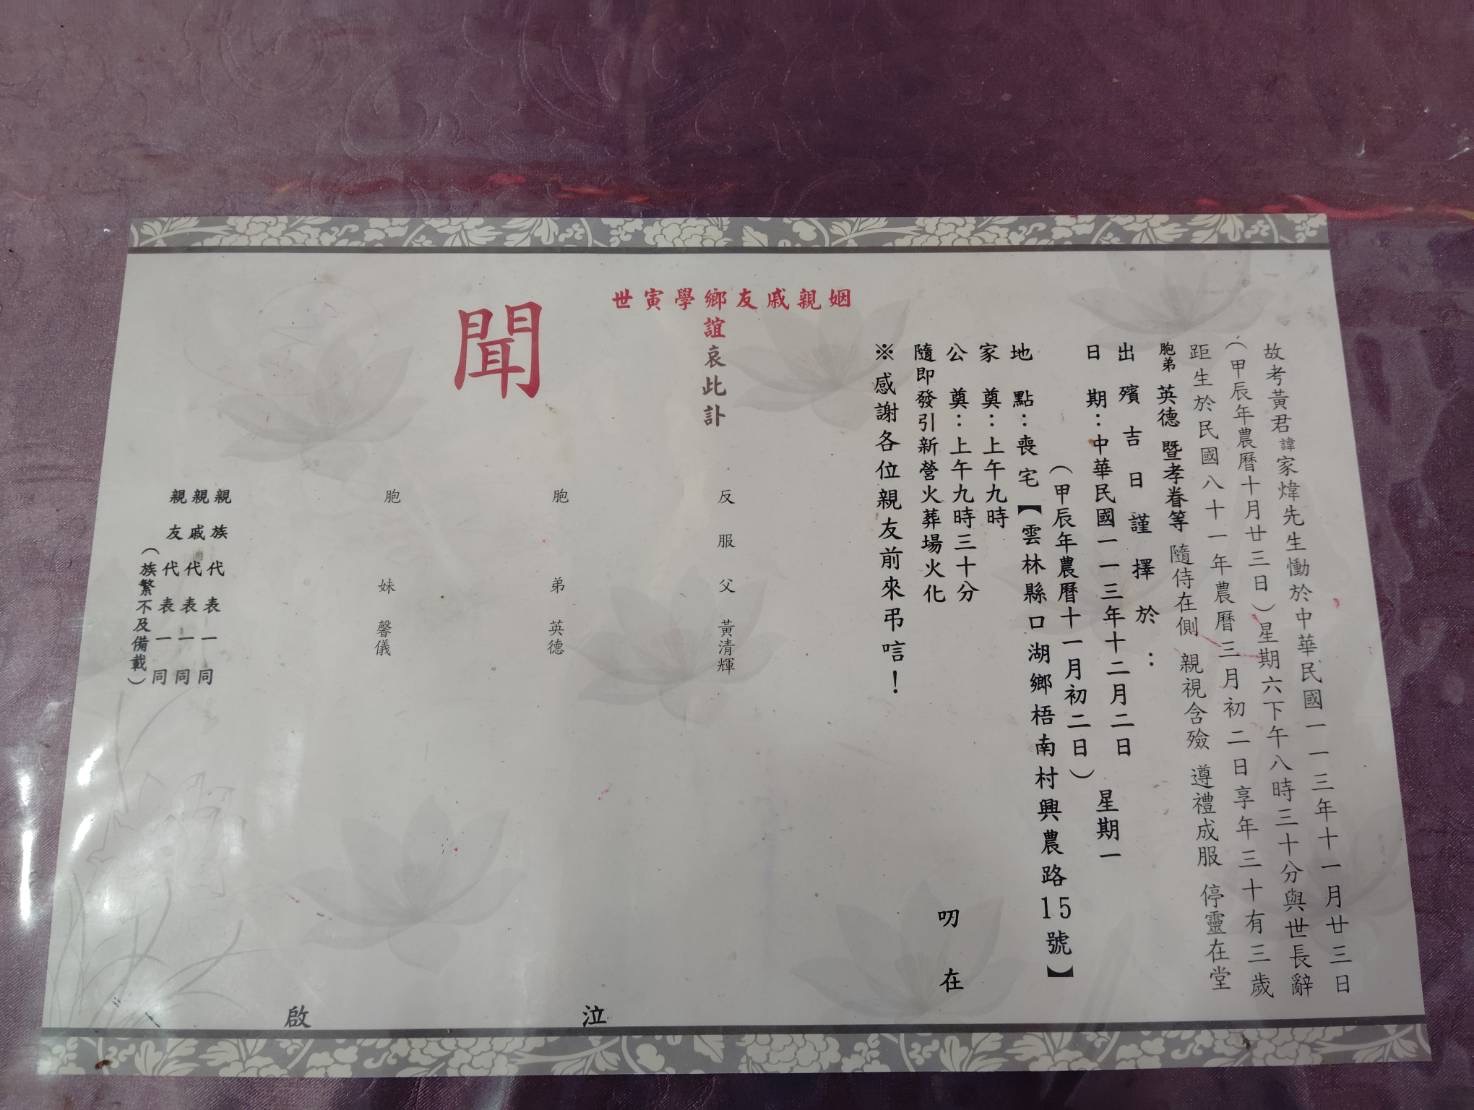 故考黃君諱家煒先生慟於中華民國一一三年十一月廿三日
(甲辰年農曆十月廿三日)星期六下午八時三十分與世長辭
距生於民國八十一年農曆三月初二日享年三十有三歲
胞弟 英德 暨孝眷等 隨侍在側 親視含殮 遵禮成服 停靈在堂
出殯吉日謹擇於:
日期:中華民國一一三年十二月二日 星期一
(甲辰年農曆十一月初二日)
地點:喪宅【雲林縣口湖鄉梧南村興農路15號】
家奠:上午九時
公奠:上午九時三十分
隨即發引新營火葬場火化
※感謝各位親友前來弔唁!
叨在
姻親戚友鄉學寅世
誼哀此訃
聞
反服父 黃清輝
胞弟 英德
胞妹 馨儀
親族代表一同
親戚代表一同
親友代表一同
(族繁不及備載)
泣
啟